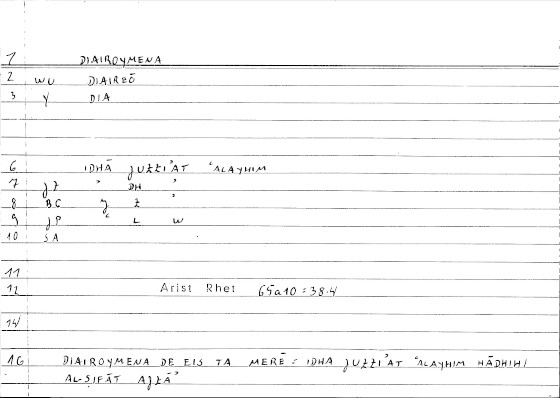 1 DIAIROYMENA
2 WU DIAIREŌ
3 Y DIA
6 IDHĀ JUZZI'AT ʿALAYHIM
7 JZ " DH '
8 BC J Z '
9 JP ʿ L W
10 SA
11
12 Arist Rhet 65a10 = 38.4
14
16 DIAIROYMENA DE EIS TA MERĒ = IDHA JUZZI'AT ʿALAYHIM HĀDHIHI
AL-ṢIFĀT AJZĀ'